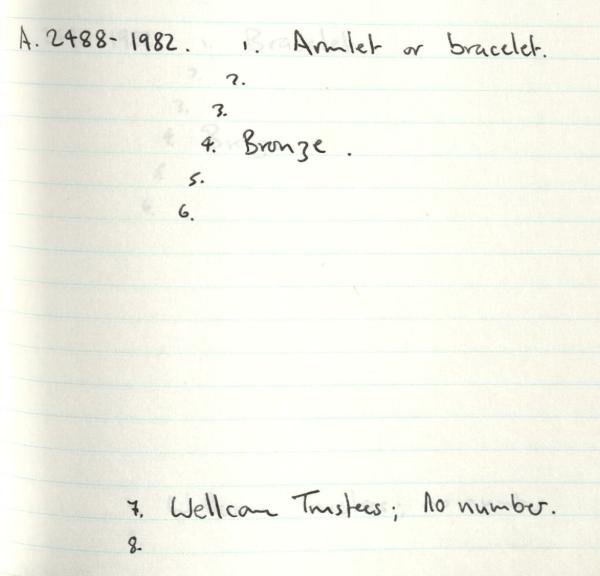 A. 2488-1982. 1. Armlet or bracelet.
2.
3.
4. Bronze.
5.
6.
7. Wellcome Trustees; No number.
8.